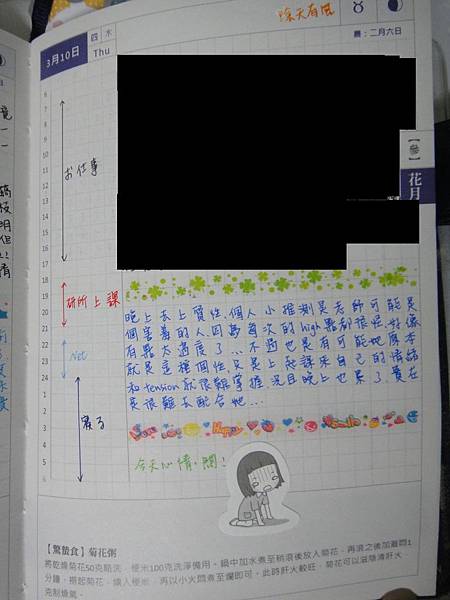 陰天有風
3月10日
四 木
Thu
農：二月六日
【參】
花月
6
7
8
9
10
11
12
13
14
15
16
17
18
19
20
21
22
23
24
1
2
3
4
5
6
お仕事
研所上課
Net
寝る
晚上去上質性，個人小推測是老師可能是
個害羞的人，因為每次的high點都很怪，好像
有點太過度了...不過也是有可能她原本
就是這種個性，又是上惡
和tension就很難掌握，況且晚上也累了，實在
是很難去配合她...
Happy
Smile
今天心情。悶！
【驚蟄食】菊花粥
將乾燥菊花50克略洗，粳米100克洗淨備用。鍋中加水煮至稍滾後放入菊花，再滾之後加蓋悶1
分鐘，撈起菊花，續入粳米，再以小火悶煮至爛即可。此時肝火較旺，菊花可以滋陰清肝火，
克制燥氣。